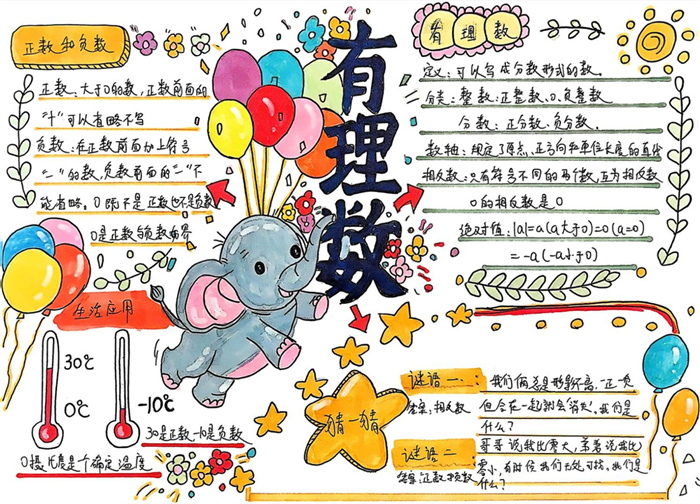 正数和负数
正数:大于0的数,正数前面的
"+"可以省略不写
负数:在正数前面加上符号
"-"的数,负数前面的"-"不
能省略。0既不是正数也不是负数
0是正数与负数的分界
有理数
有理数
定义:可以写成分数形式的数。
分类:整数:正整数、0、负整数
分数:正分数、负分数。
数轴:规定了原点、正方向和单位长度的直线
相反数:只有符号不同的两个数,互为相反数
0的相反数是0
绝对值:|a|=a(a大于0)=0(a=0)
=-a(-a小于0)
生活应用
30℃
0℃
-10℃
30是正数-10是负数
0摄氏度是个确定温度
猜一猜
谜语一:
我们俩总是形影不离,一正一负
答案:相反数
但合在一起就会消失,我们是
什么?
谜语二
哥哥说我比零大,弟弟说我比
答案:正数和负数
零小,有时候我们无处可找,我们是
什么?